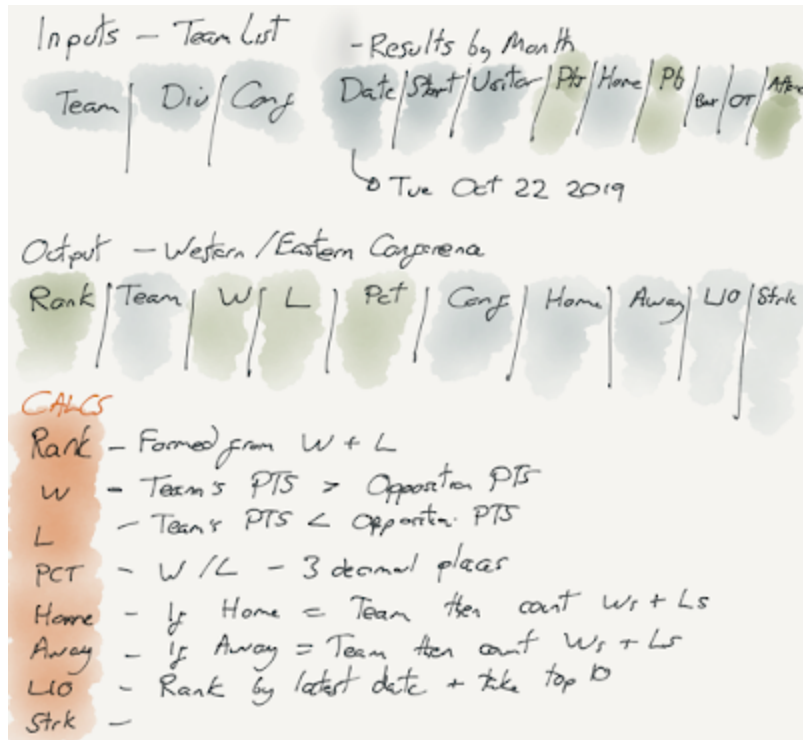 Inputs - Team List
- Results by Month
Team Div Conf
Date Start Visitor Pts Home Pts Box OT Attend
Tue Oct 22 2019
Output - Western/Eastern Conference
Rank Team W L Pct Conf Home Away L10 Strk
CALCS
Rank - Formed from W + L
W - Team's PTS > Opposition PTS
L - Team's PTS < Opposition PTS
PCT - W/L - 3 decimal places
Home - If Home = Team then count Ws + Ls
Away - If Away = Team then count Ws + Ls
L10 - Rank by latest date + take top 10
Strk -